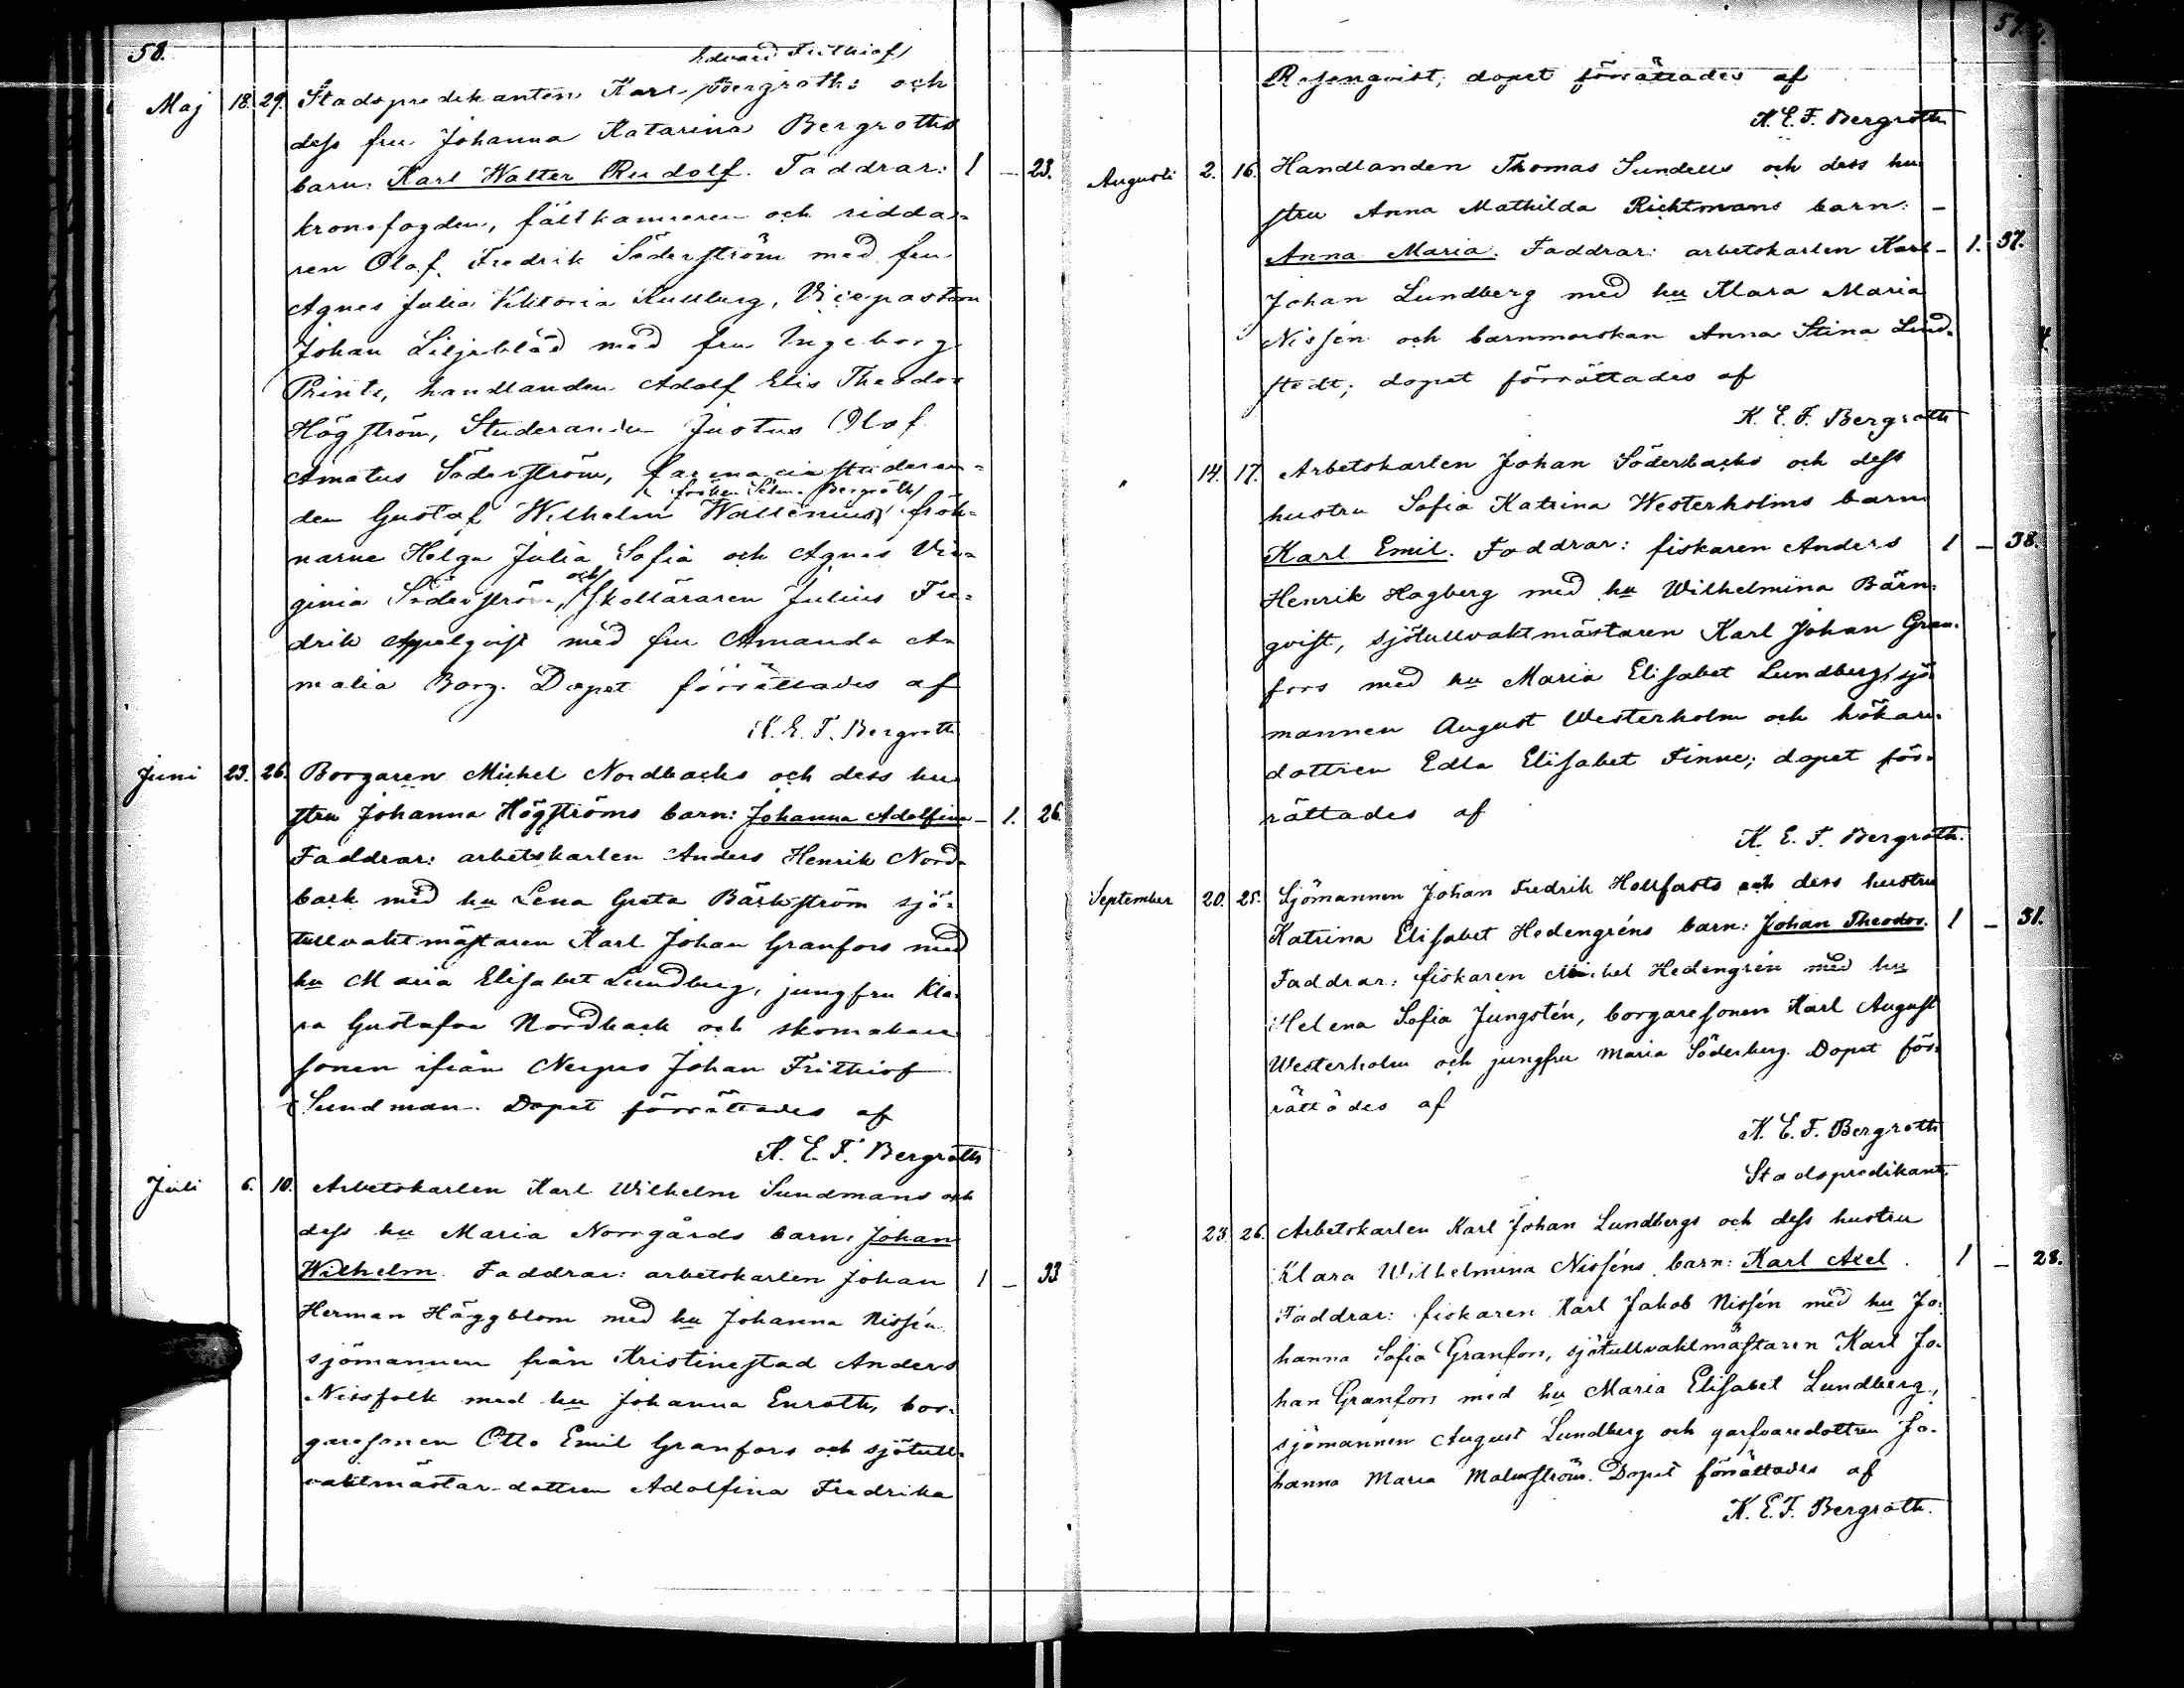 58.
Edvard Frithiof
Maj 18. 29. Stadspredikanten Karl Bergroths och
dess fru Johanna Katarina Bergroths
barn: Karl Walter Rudolf. Faddrar: 1 — 23.
kronofogden, fältkamreren och ridda-
ren Olof Fredrik Söderström med fru
Agnes Julia Viktoria Kullberg, Vicepastorn
Johan Liljeblad med fru Ingeborg
Printz, handlanden Adolf Elis Theodor
Högström, Studeranden Justus Olof
Amatus Söderström, farmaciæstuderan-
fröken Selma Bergroth
den Gustaf Wilhelm Wallenius, frök-
narne Helga Julia Sofia och Agnes Vir-
och
ginia Söderström, Skolläraren Julius Fre-
drik Appelqvist med fru Amanda A-
malia Borg. Dopet förrättades af
K. E. F. Bergroth
Juni 23. 26. Borgaren Michel Nordbacks och dess hu-
stru Johanna Högströms barn: Johanna Adolfina — 1. 26.
Faddrar: arbetskarlen Anders Henrik Nord-
back med hu Lena Greta Bäckström sjö-
tullvaktmästaren Karl Johan Granfors med
hu Maria Elisabet Lundberg, jungfru Kla-
ra Gustafva Nordback och skomakare
sonen ifrån Nerpes Johan Frithiof
Sundman. Dopet förrättades af
K. E. F. Bergroth
Juli 6. 10. Arbetskarlen Karl Wilhelm Sundmans och
dess hu Maria Norrgårds barn: Johan
Wilhelm. Faddrar: arbetskarlen Johan 1 — 33
Herman Häggblom med hu Johanna Nissén
sjömannen från Kristinestad Anders
Nissfolk med hu Johanna Enroth, bor-
garesonen Otto Emil Granfors och sjötull-
vaktmästar-dottren Adolfina Fredrika
Rosenqvist; dopet förrättades af
K. E. F. Bergroth
Augusti 2. 16. Handlanden Thomas Sundells och dess hu-
stru Anna Mathilda Richtmans barn: —
Anna Maria. Faddrar: arbetskarlen Karl — 1. 37.
Johan Lundberg med hu Klara Maria
Nissén och barnmorskan Anna Stina Lind-
stedt; dopet förrättades af
K. E. F. Bergroth
" 14. 17. Arbetskarlen Johan Söderbacks och dess
hustru Sofia Katrina Westerholms barn
Karl Emil. Faddrar: fiskaren Anders 1 — 38.
Henrik Hagberg med hu Wilhelmina Bärn-
qvist, sjötullvaktmästaren Karl Johan Gran-
fors med hu Maria Elisabet Lundberg, sjö-
mannen August Westerholm och hökare-
dottren Edla Elisabet Finne; dopet för-
rättades af
K. E. F. Bergroth.
September 20. 25. Sjömannen Johan Fredrik Hollfasts och dess hustru
Katrina Elisabet Hedengréns barn: Johan Theodor. 1 — 31.
Faddrar: fiskaren Michel Hedengrén med hu
Helena Sofia Jungstén, borgaresonen Karl August
Westerholm och jungfru Maria Söderberg. Dopet för-
rättades af
K. E. F. Bergroth
Stadspredikant.
23. 26. Arbetskarlen Karl Johan Lundbergs och dess hustru
Klara Wilhelmina Nisséns barn: Karl Axel. 1 — 28.
Faddrar: fiskaren Karl Jakob Nissén med hu Jo-
hanna Sofia Granfors, sjötullvaktmästaren Karl Jo-
han Granfors med hu Maria Elisabet Lundberg,
sjömannen August Lundberg och garfvaredottren Jo-
hanna Maria Malmström. Dopet förrättades af
K. E. F. Bergroth.